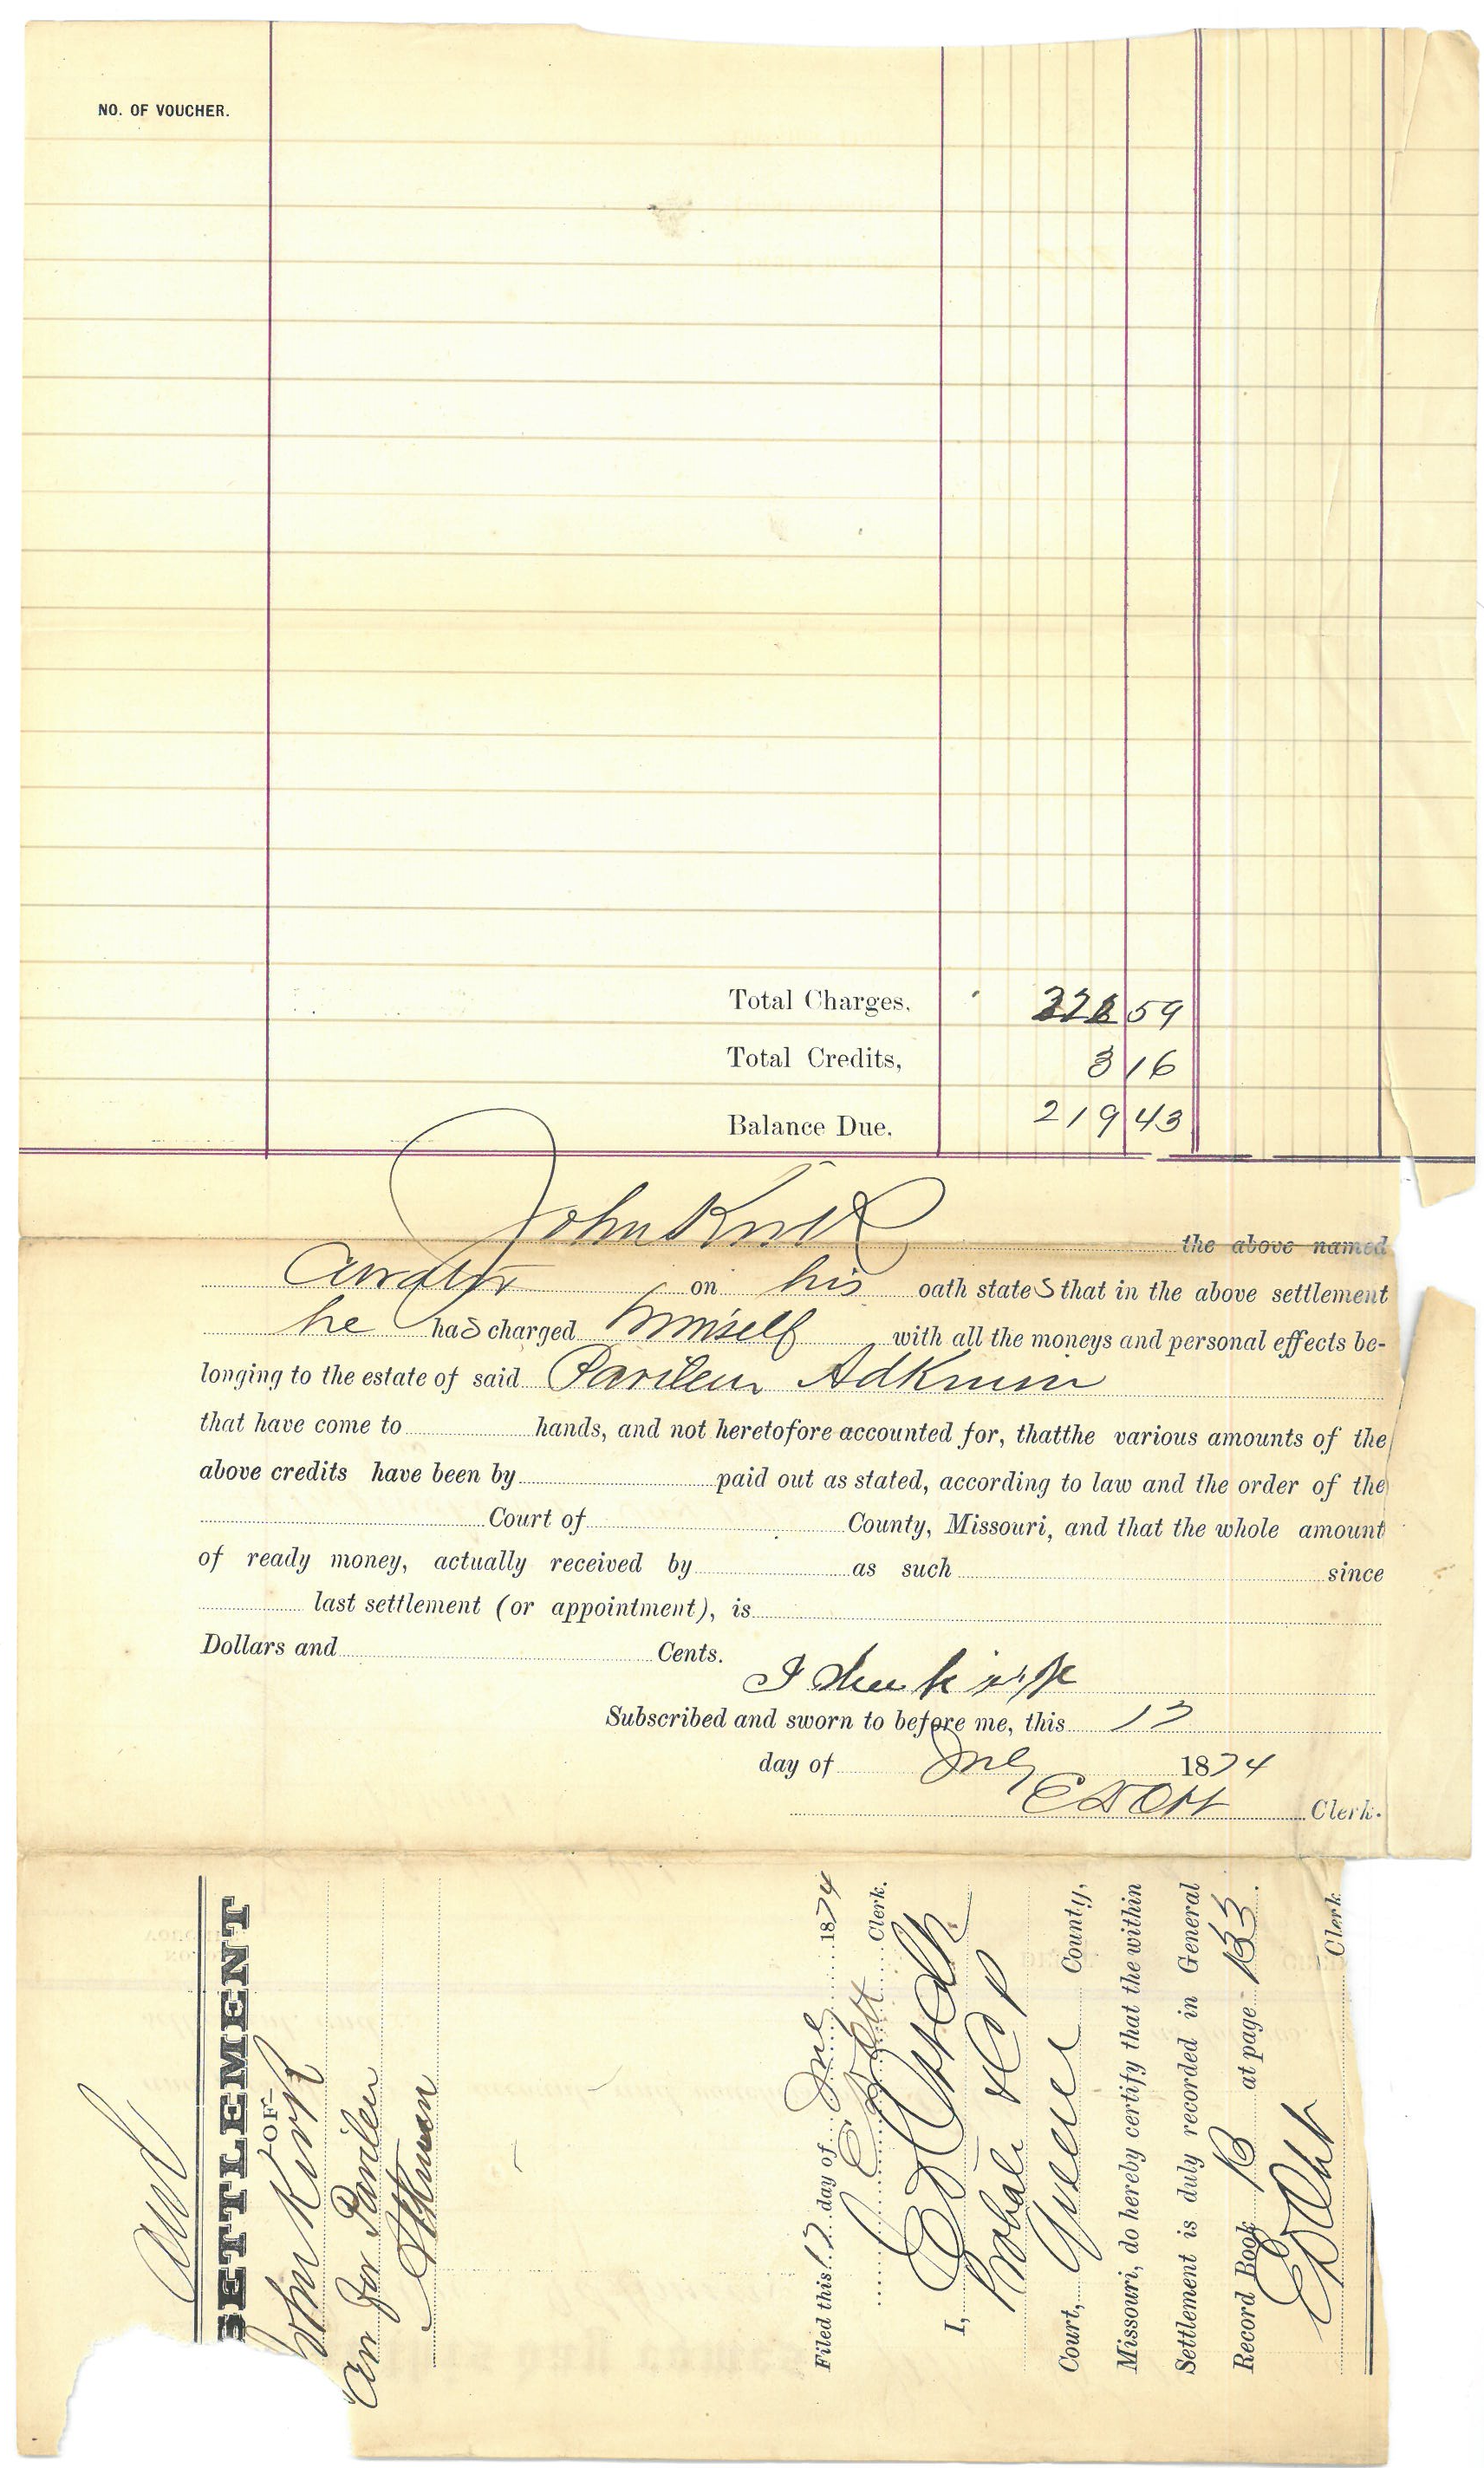 NO. OF VOUCHER.
Total Charges, 222 59
Total Credits, 3 16
Balance Due. 219 43
John Kirk the above named
Curator on his oath states that in the above settlement
he has charged himself with all the moneys and personal effects be-
longing to the estate of said Parilen Adkinson
that have come to hands, and not heretofore accounted for, thatthe various amounts of the
above credits have been by paid out as stated, according to law and the order of the
Court of County, Missouri, and that the whole amount
of ready money, actually received by as such since
last settlement (or appointment), is
Dollars and Cents.
Subscribed and sworn to before me, this 17
day of July 1874
E D Ott Clerk.
SETTLEMENT
OF
John Kirk
Cur for Parilen
Filed this 17 day of July 1874
E D Ott Clerk.
I, E D Ott Clk
Probate &C P
Court, Greene County,
Missouri, do hereby certify that the within
Settlement is duly recorded in General
Record Book B at page 133.
E D Ott Clerk